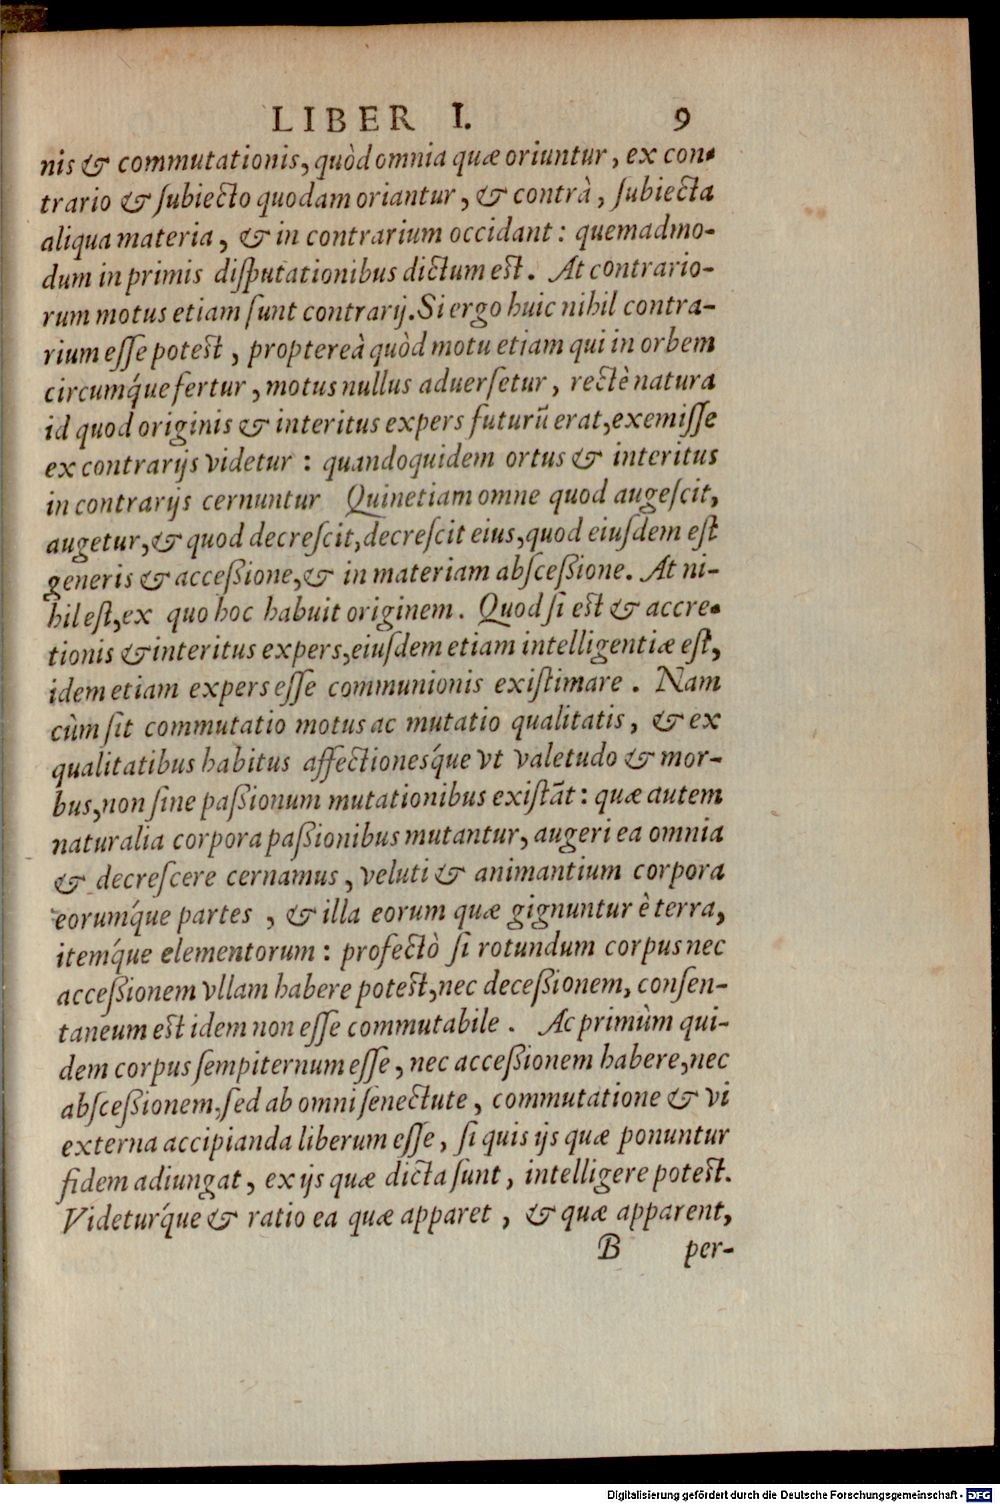 LIBER I. 9
nis & commutationis, quòd omnia quæ oriuntur, ex con-
trario & ſubiecto quodam oriantur, & contrà, ſubiecta
aliqua materia, & in contrarium occidant: quemadmo-
dum in primis diſputationibus dictum est. At contrario-
rum motus etiam ſunt contrarij. Si ergo huic nihil contra-
rium eſſe potest, proptereà quòd motu etiam qui in orbem
circumq́ue fertur, motus nullus aduerſetur, rectè natura
id quod originis & interitus expers futurũ erat, exemiſſe
ex contrarijs videtur: quandoquidem ortus & interitus
in contrarijs cernuntur Quinetiam omne quod augeſcit,
augetur, & quod decreſcit, decreſcit eius, quod eiuſdem eſt
generis & acceßione, & in materiam abſceßione. At ni-
hil eſt, ex quo hoc habuit originem. Quod ſi est & accre-
tionis & interitus expers, eiuſdem etiam intelligentiæ eſt,
idem etiam expers eſſe communionis exiſtimare. Nam
cùm ſit commutatio motus ac mutatio qualitatis, & ex
qualitatibus habitus affectionesq́ue vt valetudo & mor-
bus, non ſine paßionum mutationibus exiſtãt: quæ autem
naturalia corpora paßionibus mutantur, augeri ea omnia
& decreſcere cernamus, veluti & animantium corpora
eorumq́ue partes, & illa eorum quæ gignuntur è terra,
itemq́ue elementorum: profectò ſi rotundum corpus nec
acceßionem vllam habere potest, nec deceßionem, conſen-
taneum est idem non eſſe commutabile. Ac primùm qui-
dem corpus ſempiternum eſſe, nec acceßionem habere, nec
abſceßionem, ſed ab omni ſenectute, commutatione & vi
externa accipianda liberum eſſe, ſi quis ijs quæ ponuntur
fidem adiungat, ex ijs quæ dicta ſunt, intelligere potest.
Videturq́ue & ratio ea quæ apparet, & quæ apparent,
B per-
Digitalisierung gefördert durch die Deutsche Forschungsgemeinschaft - DFG